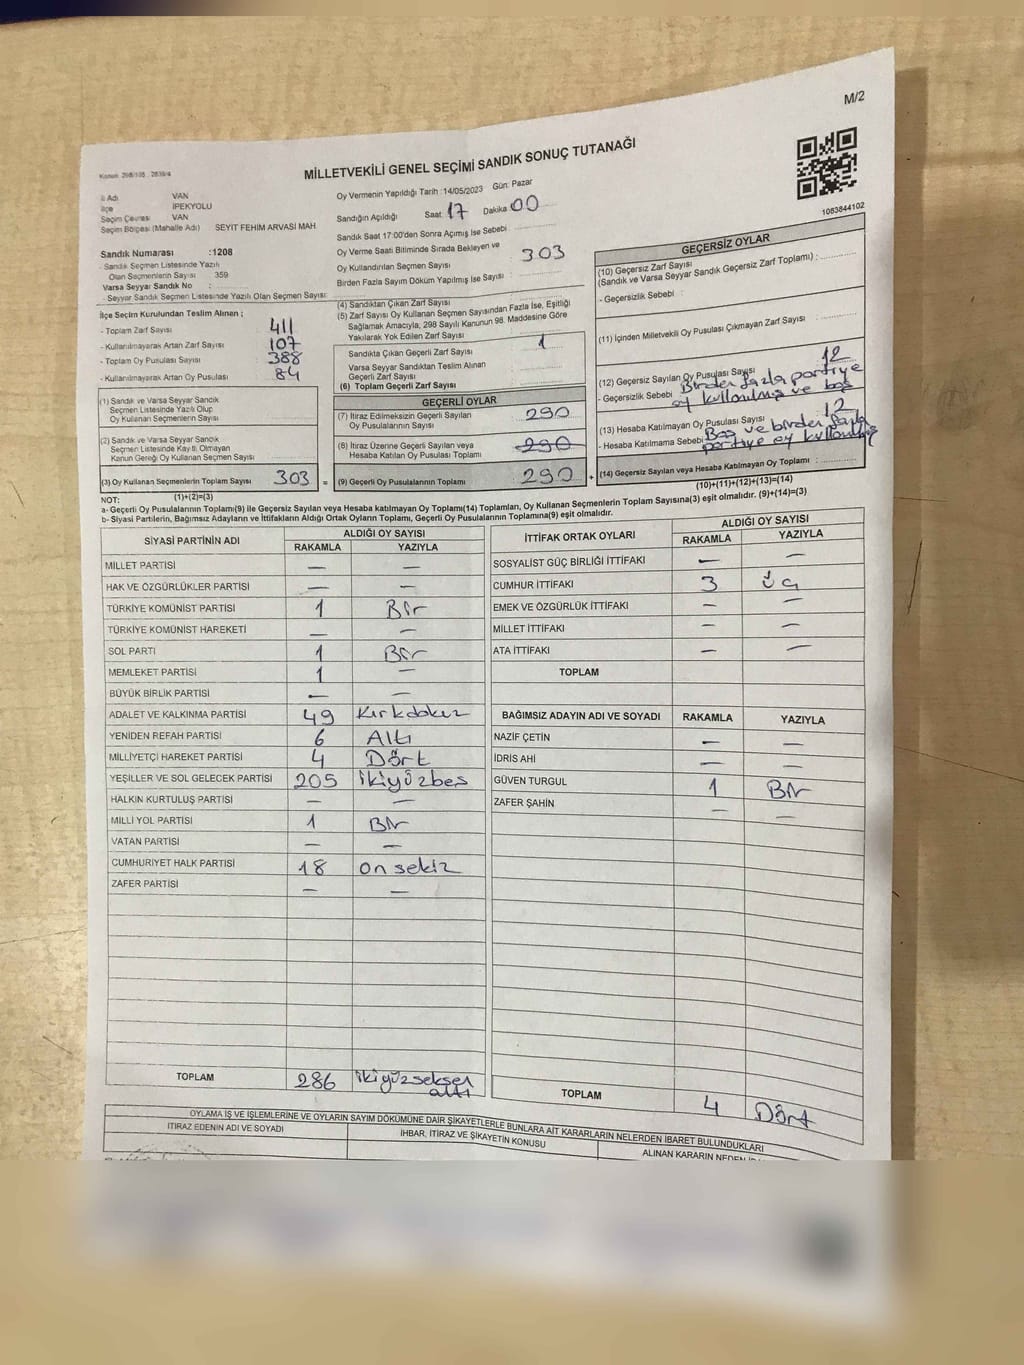 M/2
MİLLETVEKİLİ GENEL SEÇİMİ SANDIK SONUÇ TUTANAĞI
1083844102
İl Adı VAN
İlçe İPEKYOLU
Seçim Çevresi VAN
Seçim Bölgesi (Mahalle Adı) SEYİT FEHİM ARVASİ MAH
Sandık Numarası :1208
- Sandık Seçmen Listesinde Yazılı
Olan Seçmenlerin Sayısı 359
Varsa Seyyar Sandık No :
- Seyyar Sandık Seçmen Listesinde Yazılı Olan Seçmen Sayısı:
İlçe Seçim Kurulundan Teslim Alınan ;
- Toplam Zarf Sayısı 411
- Kullanılmayarak Artan Zarf Sayısı 107
- Toplam Oy Pusulası Sayısı 388
- Kullanılmayarak Artan Oy Pusulası 84
(1) Sandık ve Varsa Seyyar Sandık
Seçmen Listesinde Yazılı Olup
Oy Kullanan Seçmenlerin Sayısı
(2) Sandık ve Varsa Seyyar Sandık
Seçmen Listesinde Kayıtlı Olmayan
Kanun Gereği Oy Kullanan Seçmen Sayısı
(3) Oy Kullanan Seçmenlerin Toplam Sayısı 303 =
(1)+(2)=(3)
Oy Vermenin Yapıldığı Tarih : 14/05/2023 Gün: Pazar
Sandığın Açıldığı Saat: 17 Dakika 00
Sandık Saat 17:00'den Sonra Açımış İse Sebebi
Oy Verme Saati Bitiminde Sırada Bekleyen ve
Oy Kullandırılan Seçmen Sayısı 303
Birden Fazla Sayım Döküm Yapılmış İse Sayısı :
(4) Sandıktan Çıkan Zarf Sayısı
(5) Zarf Sayısı Oy Kullanan Seçmen Sayısından Fazla İse, Eşitliği
Sağlamak Amacıyla, 298 Sayılı Kanunun 98. Maddesine Göre
Yakılarak Yok Edilen Zarf Sayısı
Sandıkta Çıkan Geçerli Zarf Sayısı 1
Varsa Seyyar Sandıktan Teslim Alınan
Geçerli Zarf Sayısı
(6) Toplam Geçerli Zarf Sayısı
GEÇERLİ OYLAR
(7) İtiraz Edilmeksizin Geçerli Sayılan
Oy Pusulalarının Sayısı 290
(8) İtiraz Üzerine Geçerli Sayılan veya
Hesaba Katılan Oy Pusulası Toplamı 290
(9) Geçerli Oy Pusulalarının Toplamı 290 +
GEÇERSİZ OYLAR
(10) Geçersiz Zarf Sayısı
(Sandık ve Varsa Seyyar Sandık Geçersiz Zarf Toplamı) :
- Geçersizlik Sebebi :
(11) İçinden Milletvekili Oy Pusulası Çıkmayan Zarf Sayısı :
(12) Geçersiz Sayılan Oy Pusulası Sayısı 12
- Geçersizlik Sebebi Birden fazla partiye
oy kullanılmış ve boş
(13) Hesaba Katılmayan Oy Pusulası Sayısı 12
- Hesaba Katılmama Sebebi Boş ve birden fazla
partiye oy kullanılmış
(14) Geçersiz Sayılan veya Hesaba Katılmayan Oy Toplamı :
(10)+(11)+(12)+(13)=(14)
NOT:
a- Geçerli Oy Pusulalarının Toplamı(9) ile Geçersiz Sayılan veya Hesaba Katılmayan Oy Toplamı(14) Toplamları, Oy Kullanan Seçmenlerin Toplam Sayısına(3) eşit olmalıdır. (9)+(14)=(3)
b- Siyasi Partilerin, Bağımsız Adayların ve İttifakların Aldığı Ortak Oyların Toplamı, Geçerli Oy Pusulalarının Toplamına(9) eşit olmalıdır.
SİYASİ PARTİNİN ADI ALDIĞI OY SAYISI
RAKAMLA YAZIYLA
MİLLET PARTİSİ — —
HAK VE ÖZGÜRLÜKLER PARTİSİ — —
TÜRKİYE KOMÜNİST PARTİSİ 1 Bir
TÜRKİYE KOMÜNİST HAREKETİ — —
SOL PARTİ 1 Bir
MEMLEKET PARTİSİ 1 —
BÜYÜK BİRLİK PARTİSİ — —
ADALET VE KALKINMA PARTİSİ 49 Kırkdokuz
YENİDEN REFAH PARTİSİ 6 Altı
MİLLİYETÇİ HAREKET PARTİSİ 4 Dört
YEŞİLLER VE SOL GELECEK PARTİSİ 205 ikiyüzbeş
HALKIN KURTULUŞ PARTİSİ — —
MİLLİ YOL PARTİSİ 1 Bir
VATAN PARTİSİ — —
CUMHURİYET HALK PARTİSİ 18 on sekiz
ZAFER PARTİSİ — —
TOPLAM 286 ikiyüzseksen
altı
İTTİFAK ORTAK OYLARI ALDIĞI OY SAYISI
RAKAMLA YAZIYLA
SOSYALİST GÜÇ BİRLİĞİ İTTİFAKI — —
CUMHUR İTTİFAKI 3 Üç
EMEK VE ÖZGÜRLÜK İTTİFAKI — —
MİLLET İTTİFAKI — —
ATA İTTİFAKI — —
TOPLAM
BAĞIMSIZ ADAYIN ADI VE SOYADI RAKAMLA YAZIYLA
NAZİF ÇETİN — —
İDRİS AHİ — —
GÜVEN TURGUL 1 Bir
ZAFER ŞAHİN — —
TOPLAM 4 Dört
OYLAMA İŞ VE İŞLEMLERİNE VE OYLARIN SAYIM DÖKÜMÜNE DAİR ŞİKAYETLERLE BUNLARA AİT KARARLARIN NELERDEN İBARET BULUNDUKLARI
İTİRAZ EDENİN ADI VE SOYADI
İHBAR, İTİRAZ VE ŞİKAYETİN KONUSU
ALINAN KARARIN